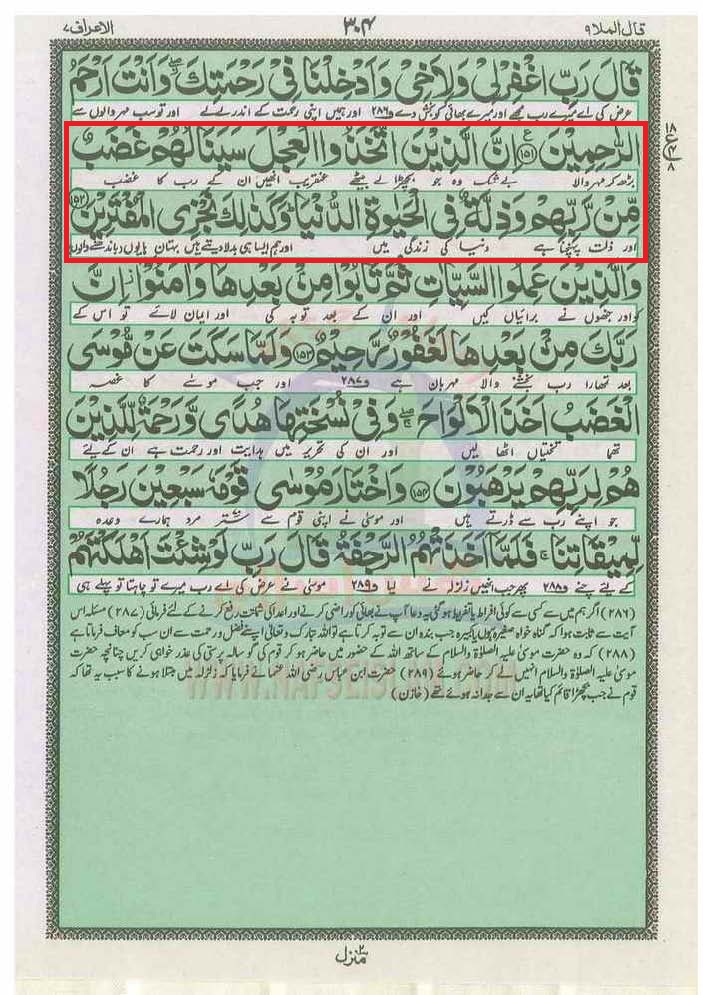 قال الملا٩ ٣٠٤ الاعراف٧
قَالَ رَبِّ اغْفِرْ لِیْ وَلِاَخِیْ وَاَدْخِلْنَا فِیْ رَحْمَتِكَ ۖ وَاَنْتَ اَرْحَمُ
عرض کی اے میرے رب مجھے اور میرے بھائی کو بخش دے و۲۸۶ اور ہمیں اپنی رحمت کے اندر لے لے اور تو سب مہر والوں سے
الرّٰحِمِیْنَ ﴿۱۵۱﴾ ع اِنَّ الَّذِیْنَ اتَّخَذُوا الْعِجْلَ سَیَنَالُهُمْ غَضَبٌ
بڑھ کر مہر والا بے شک وہ جو بچھڑا لے بیٹھے عنقریب انھیں ان کے رب کا غضب
مِّنْ رَّبِّهِمْ وَذِلَّةٌ فِی الْحَیٰوةِ الدُّنْیَا ؕ وَكَذٰلِكَ نَجْزِی الْمُفْتَرِیْنَ ﴿۱۵۲﴾
اور ذلت پہنچنا ہے دنیا کی زندگی میں اور ہم ایسا ہی بدلا دیتے ہیں بہتان ہایوں
وَالَّذِیْنَ عَمِلُوا السَّیِّاٰتِ ثُمَّ تَابُوْا مِنْۢ بَعْدِهَا وَاٰمَنُوْۤا ؗ اِنَّ
کو اور جنھوں نے برائیاں کیں اور ان کے بعد توبہ کی اور ایمان لائے تو اس کے
رَبَّكَ مِنْۢ بَعْدِهَا لَغَفُوْرٌ رَّحِیْمٌ ﴿۱۵۳﴾ وَلَمَّا سَكَتَ عَنْ مُّوْسَی
بعد تمھارا رب بخشنے والا مہربان ہے و۲۸۷ اور جب موسے کا غصہ
الْغَضَبُ اَخَذَ الْاَلْوَاحَ ۖۚ وَفِیْ نُسْخَتِهَا هُدًی وَّرَحْمَةٌ لِّلَّذِیْنَ
تھما تختیاں اٹھا لیں اور ان کی تحریر میں ہدایت اور رحمت ہے ان کے لئے
هُمْ لِرَبِّهِمْ یَرْهَبُوْنَ ﴿۱۵۴﴾ وَاخْتَارَ مُوْسٰی قَوْمَهٗ سَبْعِیْنَ رَجُلًا
جو اپنے رب سے ڈرتے ہیں اور موسیٰ نے اپنی قوم سے ستر مرد ہمارے وعدہ
لِّمِیْقَاتِنَا ۚ فَلَمَّاۤ اَخَذَتْهُمُ الرَّجْفَةُ قَالَ رَبِّ لَوْ شِئْتَ اَهْلَكْتَهُمْ
کے لئے چنے و۲۸۸ پھر جب انھیں زلزلہ نے لیا و۲۸۹ موسیٰ نے عرض کی اے رب میرے تو چاہتا تو پہلے ہی
(۲۸۶) اگر ہم میں سے کسی سے کوئی افراط یا تفریط ہو گئی یہ دعا آپ نے بھائی کو راضی کرنے اور اعدا کی شماتت رفع کرنے کے لئے فرمائی (۲۸۷) مسئلہ اس
آیت سے ثابت ہوا کہ گناہ خواہ صغیرہ ہوں یا کبیرہ جب بندہ ان سے توبہ کرتا ہے تو اللہ تبارک وتعالیٰ اپنے فضل ورحمت سے ان سب کو معاف فرماتا ہے
(۲۸۸) کہ وہ حضرت موسیٰ علیہ الصلاۃ والسلام کے ساتھ اللہ کے حضور میں حاضر ہو کر قوم کی گوسالہ پرستی کی عذر خواہی کریں چنانچہ حضرت
موسیٰ علیہ الصلاۃ والسلام انہیں لے کر حاضر ہوئے (۲۸۹) حضرت ابن عباس رضی اللہ عنہما نے فرمایا کہ زلزلہ میں مبتلا ہونے کا سبب یہ تھا کہ
قوم نے جب بچھڑا قائم کیا تھا یہ ان سے جدا نہ ہوئے تھے (خازن)
WWW.NAFSEISLAM.COM
منزل ۲